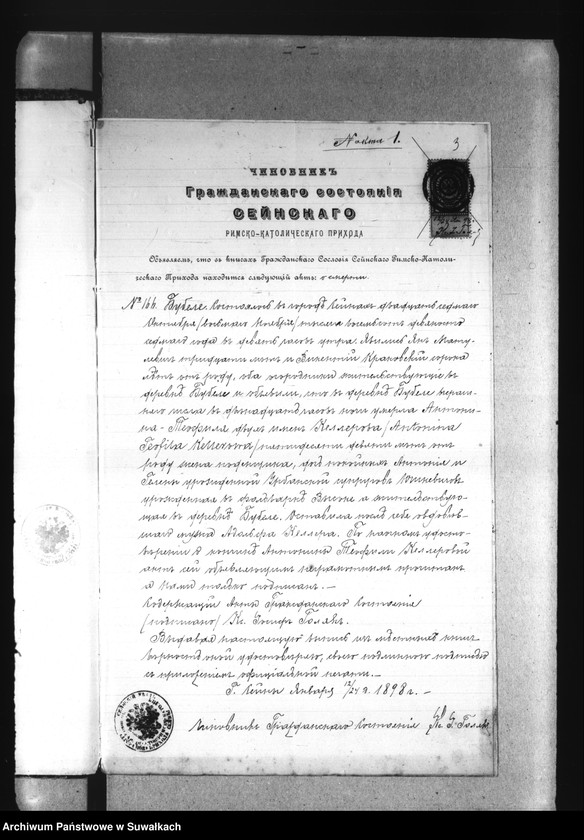 № акта 1.
3
ЧИНОВНИКЪ
Гражданскаго состоянія
СЕЙНСКАГО
РИМСКО-КАТОЛИЧЕСКАГО ПРИХОДА
Объявляемъ, что въ книгахъ Гражданскаго Сословія Сейнскаго Римско-Католи-
ческаго Прихода находится слѣдующій актъ: о смерти.
№ 166. Бубеле. Состоялось въ городѣ Сейнахъ двадцать седьмаго
Октября /восьмаго Ноября/ тысяча восемьсотъ девяносто
седьмаго года въ девять часовъ утра. Явились Янъ
тридцати лѣтъ и Викентій Краковскій сорока
лѣтъ отъ роду, оба жительствующіе въ
деревнѣ Бубеле и объявили, что въ деревнѣ Бубеле
числа въ часовъ ночи умерла Антони-
на-Теофиля двухъ именъ Келлерова /Antonina
Teofila Kellerowa/ пятидесяти девяти лѣтъ отъ
роду дочь покойныхъ Антонія и
урожденной Урбанской супруговъ
урожденная въ фольваркѣ и жительствую-
щая въ деревнѣ Бубеле. Оставила послѣ себя овдовѣв-
шаго мужа Адольфа Келлера. По удосто-
вѣреніи о кончинѣ Антонины Теофили Келлеровой
актъ сей объявляющимъ неграмотнымъ прочитанъ
а Нами только подписанъ. —
Содержащій Акты Гражданскаго Состоянія
/подписано/ Кс. Голякъ.
Выдавая настоящую выпись изъ книгъ
вѣрность оной удостовѣряю, своею подписью
съ приложеніемъ оффиціальной печати. —
Г. Сейны Января 12/24 д. 1898 г. —
Чиновникъ Гражданскаго Состоянія Кс. Голякъ
Archiwum Państwowe w Suwałkach